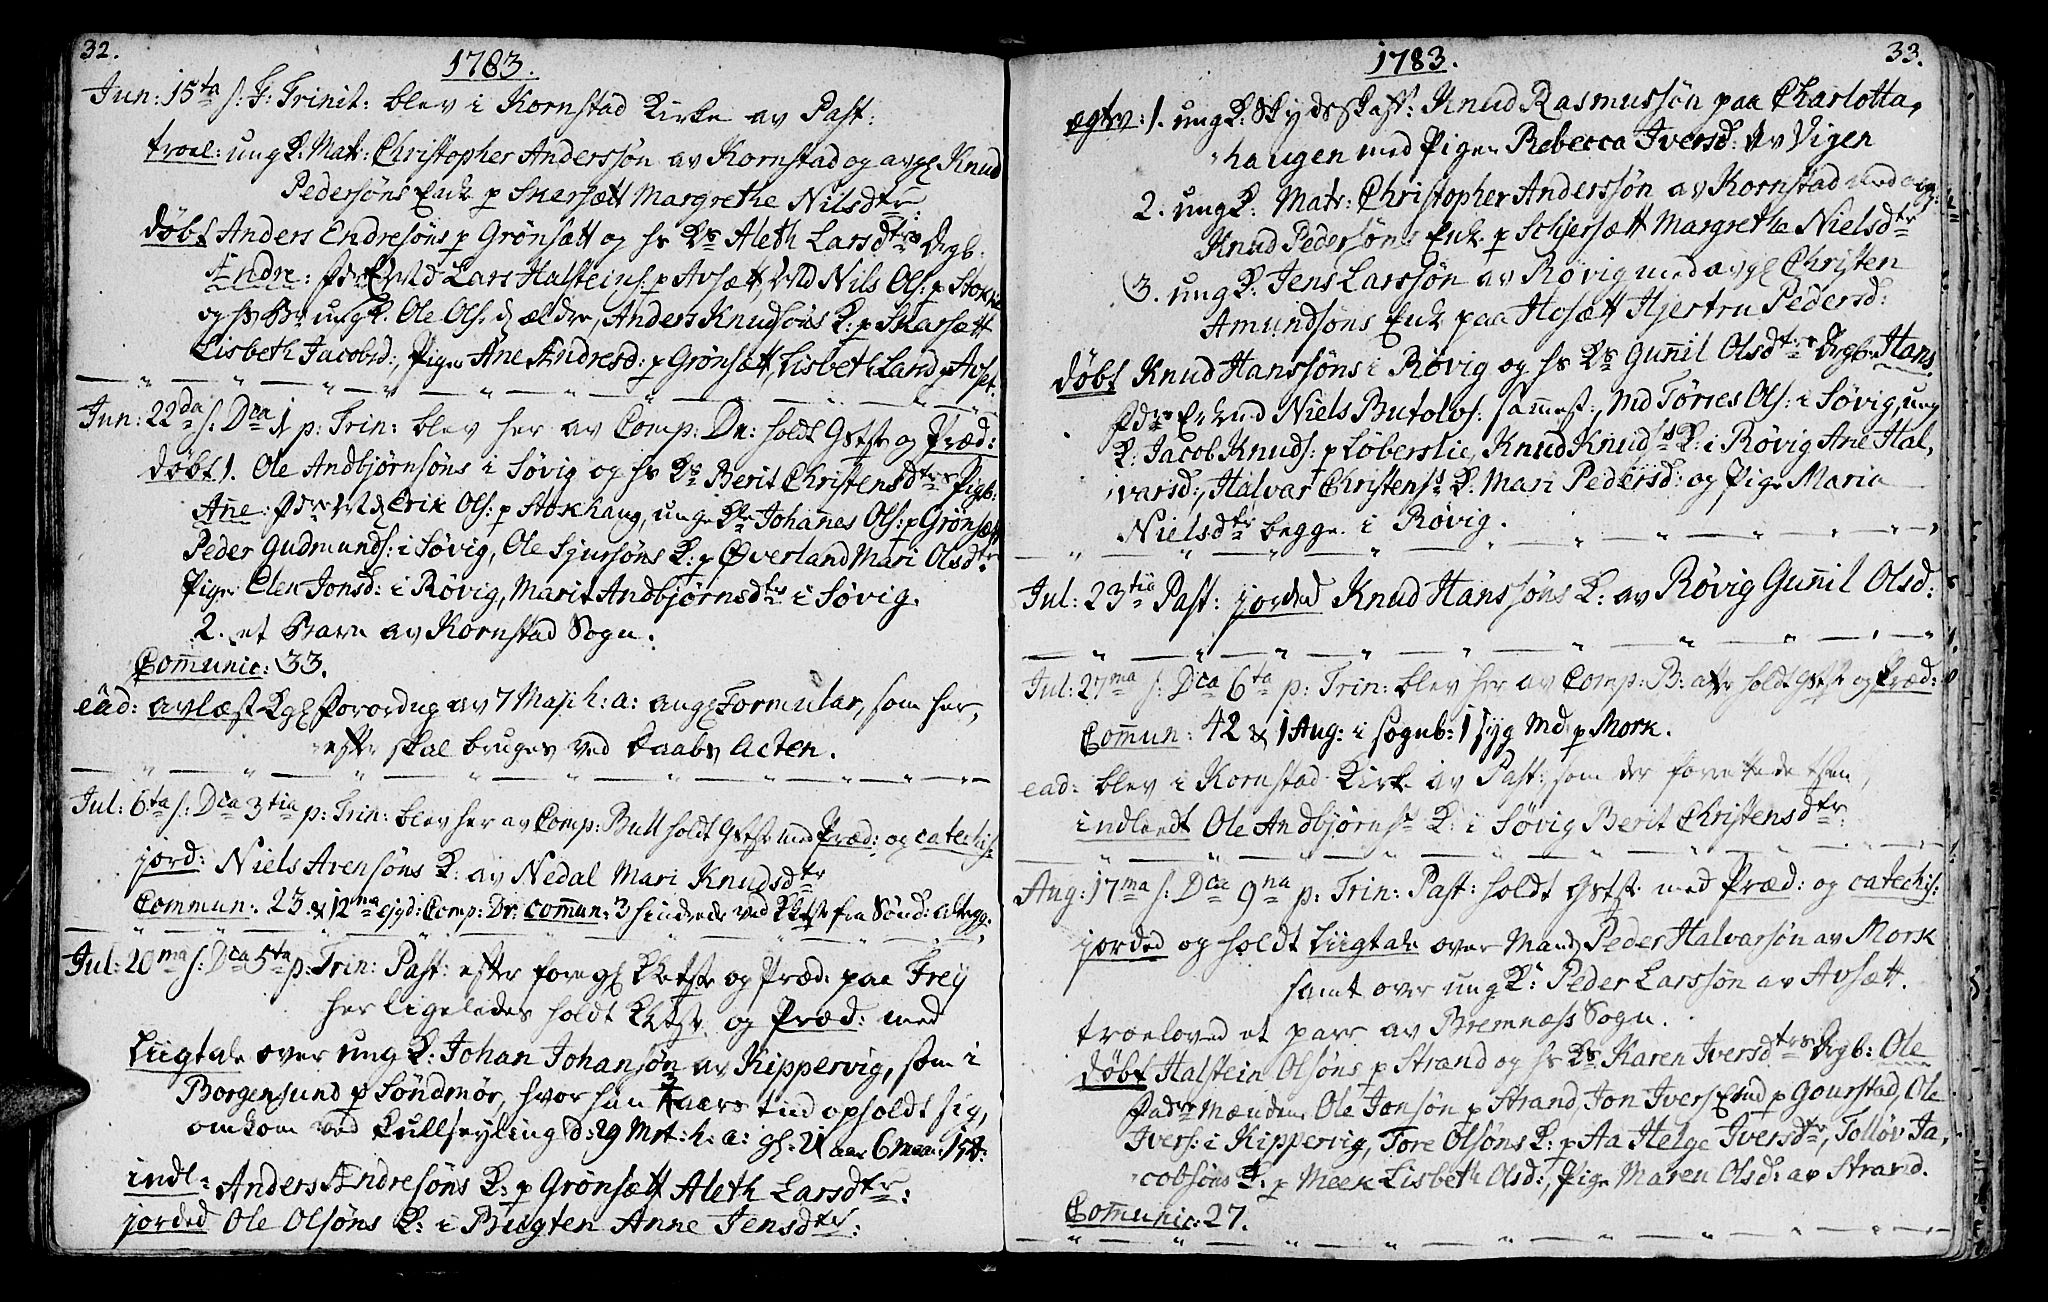 32.
1783.
Jun: 15ta s: F: Trinit: blev i Kornstad Kirke av Past:
troel: ung K: Matr: Christopher Anderssøn av Kornstad og avg Knud
Pedersøns Enk p Skersætt Margrethe Nilsdtr:
døbt Anders Endresøns p Grønsætt og hs Ks Aleth Larsdtrs drgb:
Endre: Fdre Md Lars Halsteins: p Avsætt, Md Nils Ols: p Stokke
og hs Br ung K. Ole Ols. d ældre, Anders Knudsøns K: p Skarsætt
Lisbeth Jacobsd:, Pige Ane Andresd: p Grønsætt, Lisbeth Larsd p Avset.
Jun: 22da s: Dca 1 p: Trin: blev her av Comp: Dr: holdt Gstst og Præd:
døbt 1. Ole Andbjørnsøns i Søvig og hs Ks Berit Christensdtrs Pigb:
Ane: Fdre Md Erik Ols: p Stokhaug, unge Kle Johanes Ols: p Grønsætt
Peder Gudmunds: i Søvig, Ole Sjursøns K: p Øverland Mari Olsdtr
Pige Elen Jonsd: i Røvig, Marit Andbjørnsdtr i Søvig.
2. et Barn av Kornstad Sogn.
Comunic: 33.
eâd: avlæst Kgl Forordng av 7 Maji h: a: ang Formular, som her,
efter skal bruges ved Daabs Acten.
Jul: 6ta s: Dca 3tia p: Trin: blev her av Comp: Bull holdt Gstst med Præd: og catechis:
jord: Niels Arensøns K: av Nedal Mari Knudsdtr
Commun: 23. & 12ma ejsd: Comp: Dr: comun: 3 hindrede ved fra Sønd:
Jul: 20ma s: Dca 5ta p: Trin: Past: efter foreg og Præd: paa Frey
her ligeledes holdt og Præd: med
Liigtale over ung K: Johan Johansøn av Kippervig, som i
Borgensund p Søndmør, hvor han 3 aars tiid opholdt sig,
omkom ved Kullseyling d: 29 Mrt: h: a: gl: 21 aar 6 maan: 1
indl: Anders Andresøns K: p Grønsætt Aleth Larsdtr:
jorded Ole Olsøns K: i Bugten Anne Jensdtr:
1783.
33.
egtev: 1. ung K: Skydsskaft: Knud Rasmussøn paa Charlotta,
haugen med Pige Rebecca Iversd: av Vigen
2. ung K: Matr: Christopher Anderssøn av Kornstad med avg:
Knud Pedersøns Enk: p Schjersætt Margrethe Nielsdtr
3. ung K: Jens Larssøn av Røvig med avg Christen
Amundsøns Enk paa Hosætt Hjertru Pedersd:
døbt Knud Hanssøns i Røvig og hs Ks Gunil Olsdtrs drgb: Hans.
Fdre Enkmd Niels Butolvs: sammest:, Md Tørres Ols: i Søvig, ung
K: Jacob Knuds: p Løberslie, Knud Knuds K: i Røvig Ane Hal,
varsd:, Halvar Christens K: Mari Pedersd: og Pige Maria
Nielsdtr begge i Røvig.
Jul: 23tia Past: jorded Knud Hanssøns K: av Røvig Gunil Olsd:
Jul: 27ma s: Dca 6ta p: Trin: blev her av Comp: B: atter holdt Gstst og Præd:
Comun: 42 & 1 Aug: i Sognb: 1 syg Md p Mork.
ead: blev i Kornstad Kirke av Past:, som der forrettede tjen,
indleedt Ole Andbjørns K: i Søvig Berit Christensdtr:
Aug: 17ma s: Dca 9na p: Trin: Past: holdt Gstst med Præd: og catechis:
jorded og holdt Liigtale over Mand Peder Halvarsøn av Mork
samt over ung K: Peder Larssøn av Avsætt.
troeloved et parr av Bremnæss Sogn.
døbt Halstein Olsøns p Strand og hs Ks Karen Iversdtrs drgb: Ole
Fadre mændene Ole Jonsøn p Strand, Jon Ivers Enkmd p Gourstad, Ole
Ivers: i Kippervig, Tore Olsøns K: p Aa Helge Iversdtr, Tolløv Ja,
cobsøns K: p Meek Lisbeth Olsd:, Pige Maren Olsd: av Strand.
Comunic: 27.